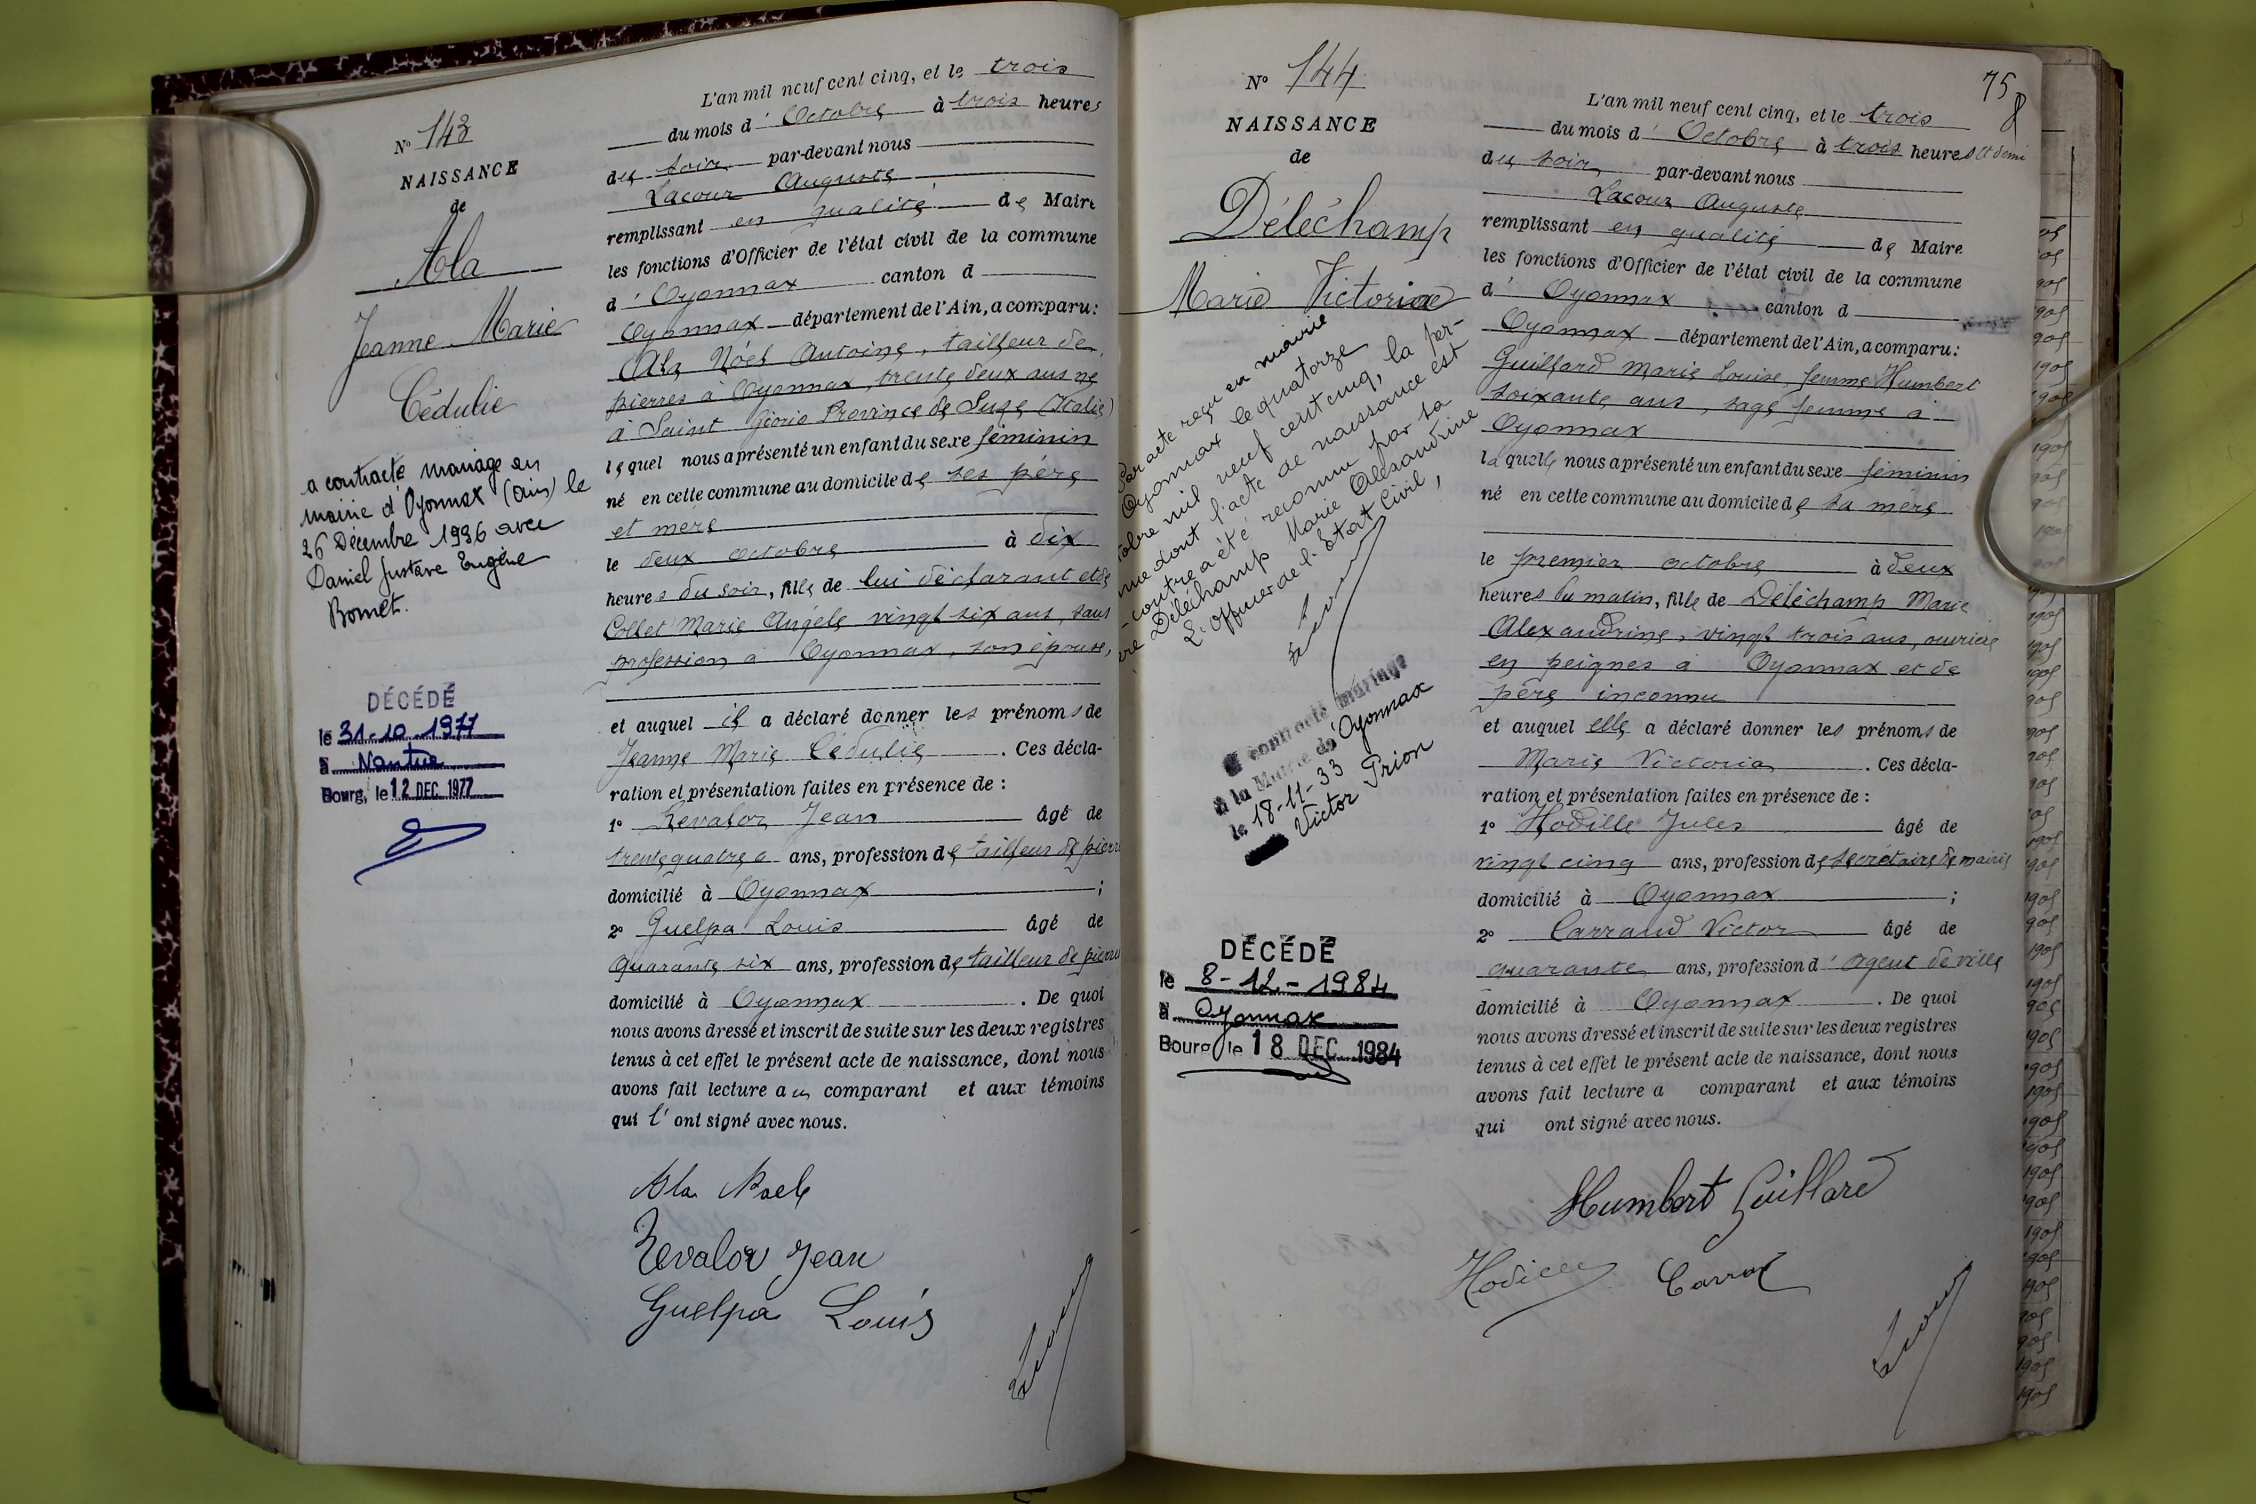 N° 143
NAISSANCE
de
Ala
Jeanne Marie
Cédulie
a contracté mariage en
mairie d'Oyonnax (Ain) le
26 Décembre 1936 avec
Daniel Gustave Eugène
Bornet.
DÉCÉDÉ
le 31-10-1977
à Nantua
Bourg, le 12 DEC. 1977
L'an mil neuf cent cinq, et le trois
du mois d' Octobre à trois heures
du soir par-devant nous
Lacour Auguste
remplissant en qualité de Maire
les fonctions d'Officier de l'état civil de la commune
d' Oyonnax canton d
Oyonnax département de l'Ain, a comparu:
Ala Noël Antoine, tailleur de
pierres à Oyonnax, trente deux ans né
à Saint Giorio Province de Suze (Italie)
lequel nous a présenté un enfant du sexe féminin
né en cette commune au domicile de ses père
et mère
le deux octobre à dix
heures du soir, fille de lui déclarant et de
Collet Marie Angèle vingt six ans, sans
profession à Oyonnax, son épouse,
et auquel il a déclaré donner les prénoms de
Jeanne Marie Cédulie. Ces décla-
ration et présentation faites en présence de :
1° Revalor Jean âgé de
trente quatre ans, profession de tailleur de pierre
domicilié à Oyonnax ;
2° Guelpa Louis âgé de
quarante six ans, profession de tailleur de pierre
domicilié à Oyonnax. De quoi
nous avons dressé et inscrit de suite sur les deux registres
tenus à cet effet le présent acte de naissance, dont nous
avons fait lecture au comparant et aux témoins
qui l' ont signé avec nous.
Ala Noele
Revalor Jean
Guelpa Louis
N° 144
NAISSANCE
de
Déléchamp
Marie Victorine
Par acte reçu en mairie
Oyonnax le quatorze
tobre mil neuf cent cinq, la per-
nne dont l'acte de naissance est
-contre a été reconnu par sa
re Déléchamp Marie Alexandrine
L'Officier de l'Etat Civil,
A contracté mariage
à la Mairie de Oyonnax
le 18-11-33
Victor Prion
DÉCÉDÉ
le 8-12-1984
à Oyonnax
Bourg le 18 DEC. 1984
75
L'an mil neuf cent cinq, et le trois
du mois d' Octobre à trois heures et demi
du soir par-devant nous
Lacour Auguste
remplissant en qualité de Maire
les fonctions d'Officier de l'état civil de la commune
d' Oyonnax canton d
Oyonnax département de l'Ain, a comparu:
Guillard Marie Louise, femme Humbert
soixante ans, sage femme à
Oyonnax
laquelle nous a présenté un enfant du sexe féminin
né en cette commune au domicile de sa mère
le premier octobre à deux
heures du matin, fille de Déléchamp Marie
Alexandrine, vingt trois ans, ouvrière
en peignes à Oyonnax et de
père inconnu
et auquel elle a déclaré donner les prénoms de
Marie Victoria. Ces décla-
ration et présentation faites en présence de :
1° Hodille Jules âgé de
vingt cinq ans, profession de secrétaire de mairie
domicilié à Oyonnax ;
2° Carraud Victor âgé de
quarante ans, profession d' agent de ville
domicilié à Oyonnax. De quoi
nous avons dressé et inscrit de suite sur les deux registres
tenus à cet effet le présent acte de naissance, dont nous
avons fait lecture a comparant et aux témoins
qui ont signé avec nous.
Humbert Guillard
Hodille